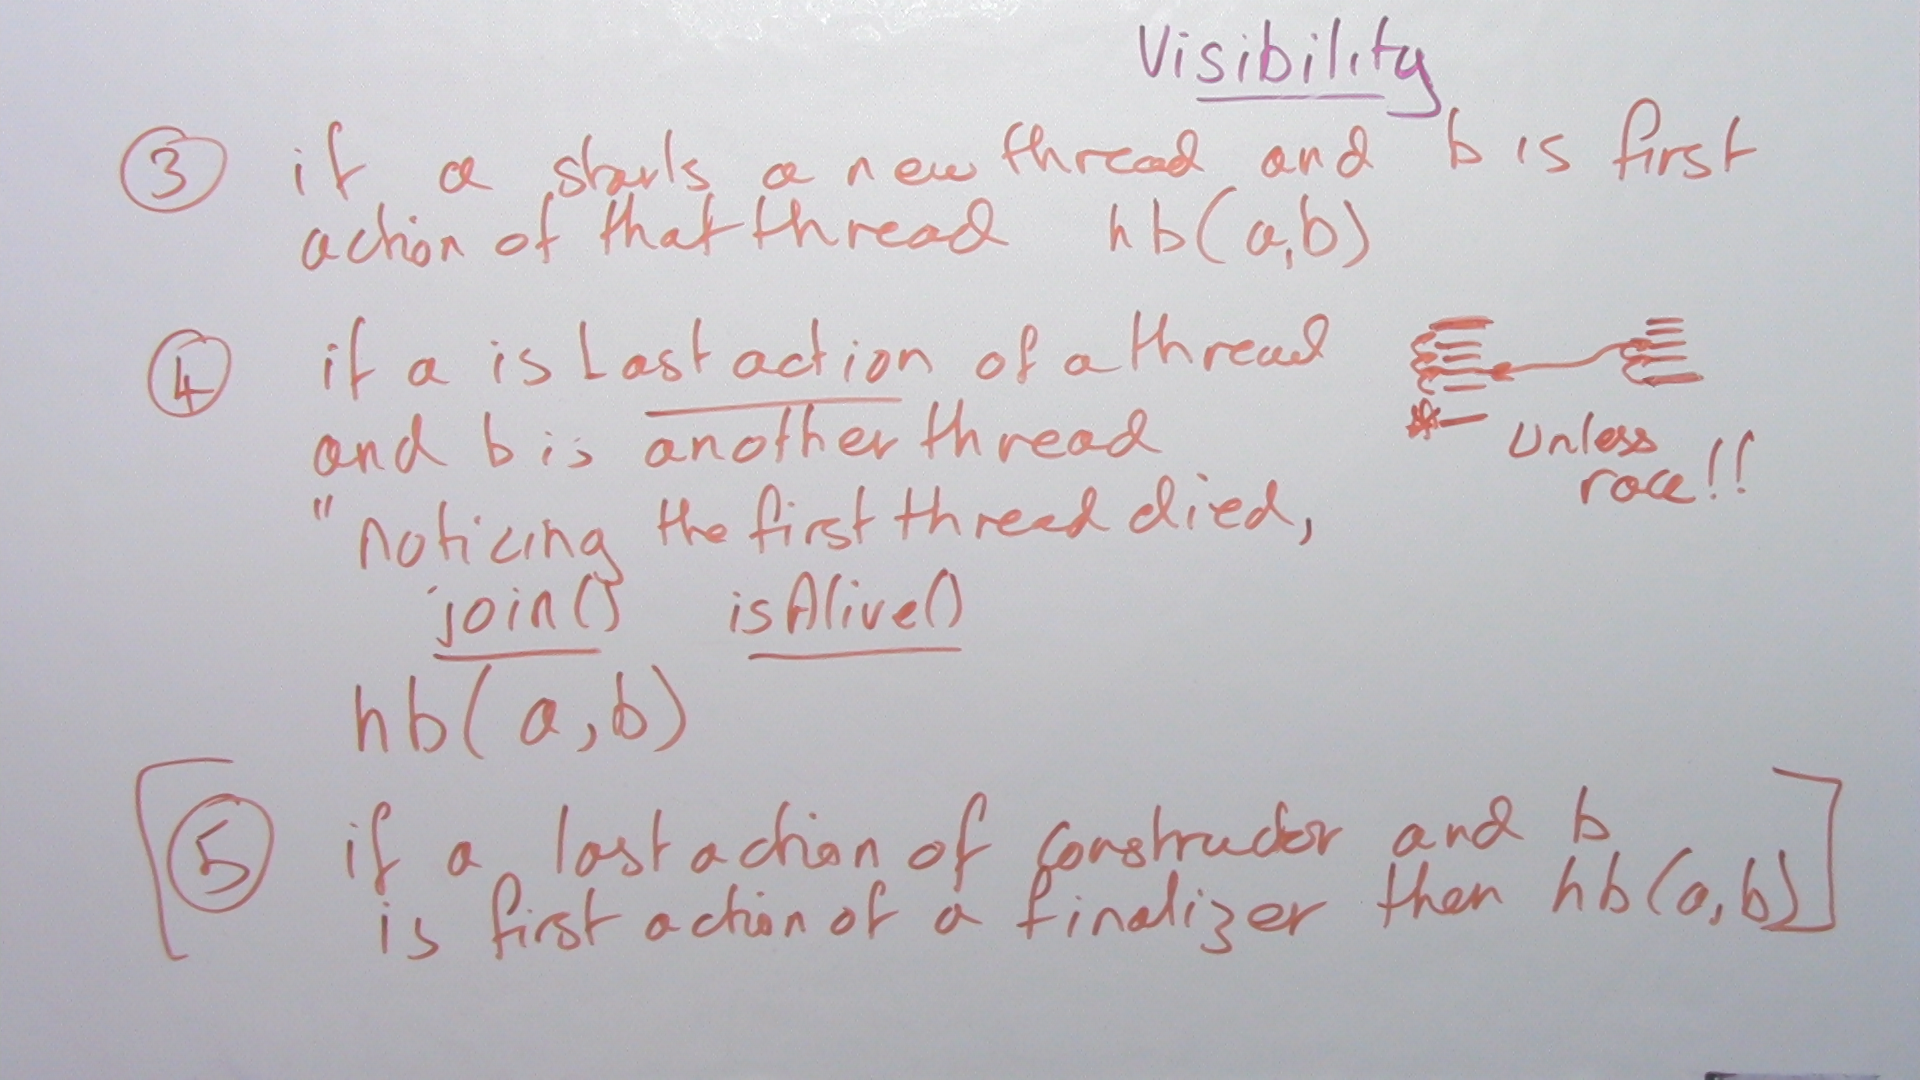 Visibility
③ if a starts a new thread and b is first
action of that thread hb(a,b)
④ if a is last action of a thread
and b is another thread
"noticing the first thread died,
join() isAlive()
hb(a,b)
Unless
race!!
[⑤ if a last action of constructor and b
is first action of a finalizer then hb(a,b)]